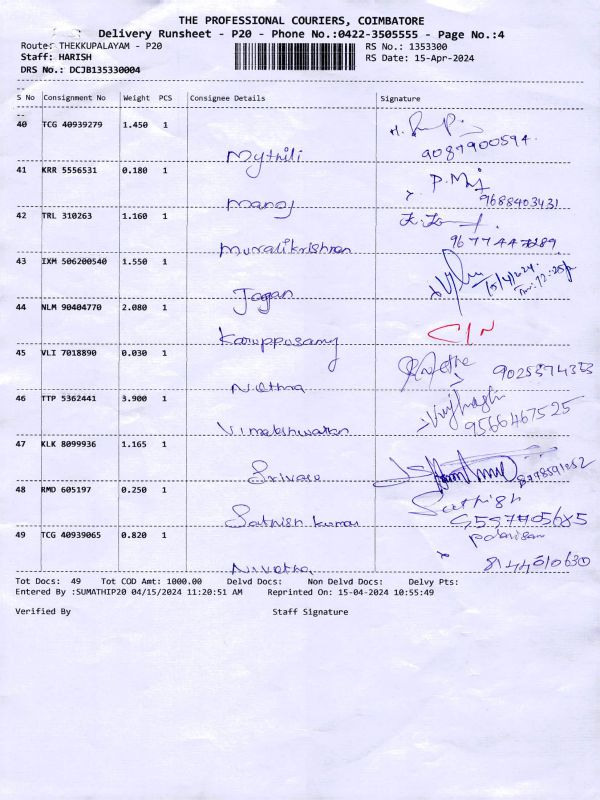 THE PROFESSIONAL COURIERS, COIMBATORE
Delivery Runsheet - P20 - Phone No.:0422-3505555 - Page No.:4
Route: THEKKUPALAYAM - P20 RS No.: 1353300
Staff: HARISH RS Date: 15-Apr-2024
DRS No.: DCJB135330004
S No Consignment No Weight PCS Consignee Details Signature
40 TCG 40939279 1.450 1
Mythili 9087900594
41 KRR 5556531 0.180 1 P.Maj
Manoj 9688403431
42 TRL 310263 1.160 1
Muralikrishnan 9677447289
43 IXM 506200540 1.550 1 15/4/2024
Jagan
44 NLM 90404770 2.080 1 C/N
Karuppusamy
45 VLI 7018890 0.030 1
Nithna 9025374353
46 TTP 5362441 3.900 1
Vimaleshwaran 9566467525
47 KLK 8099936 1.165 1
Srivasa
48 RMD 605197 0.250 1 Sathish
Sathish kumar
49 TCG 40939065 0.820 1
Nivetha
Tot Docs: 49 Tot COD Amt: 1000.00 Delvd Docs: Non Delvd Docs: Delvy Pts:
Entered By :SUMATHIP20 04/15/2024 11:20:51 AM Reprinted On: 15-04-2024 10:55:49
Verified By Staff Signature